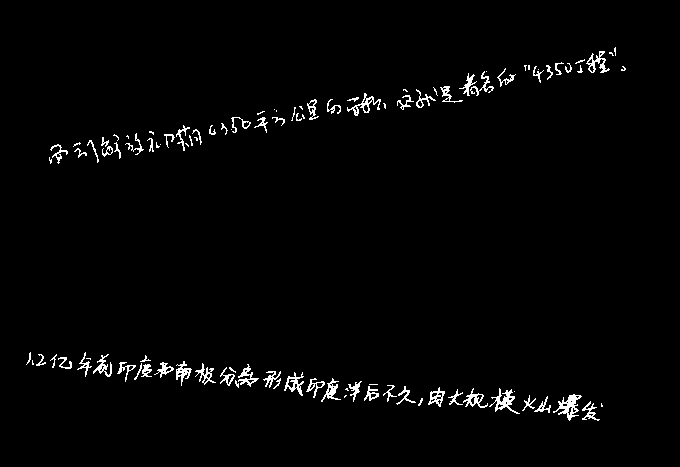 到解放初期4350平方公里的面积，这就是著名的“4350工程”。
1.2亿年前印度和南极分离形成印度洋后不久，由大规模火山爆发